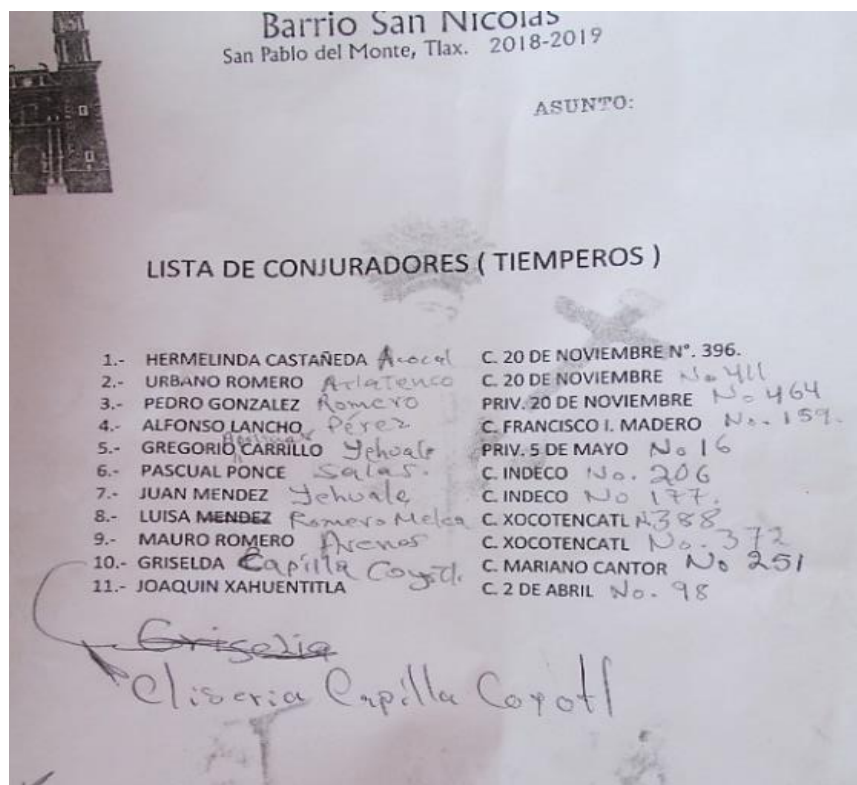 Barrio San Nicolás
San Pablo del Monte, Tlax. 2018-2019
ASUNTO:
LISTA DE CONJURADORES ( TIEMPEROS )
1.- HERMELINDA CASTAÑEDA Acocal C. 20 DE NOVIEMBRE N°. 396.
2.- URBANO ROMERO Arlatenco C. 20 DE NOVIEMBRE No 411
3.- PEDRO GONZALEZ Romero PRIV. 20 DE NOVIEMBRE No 464
4.- ALFONSO LANCHO Pérez C. FRANCISCO I. MADERO No. 159.
5.- GREGORIO CARRILLO Yehuale PRIV. 5 DE MAYO No 16
6.- PASCUAL PONCE Salas. C. INDECO No. 206
7.- JUAN MENDEZ Yehuale C. INDECO No 177.
8.- LUISA MENDEZ Romero C. XOCOTENCATL N388
9.- MAURO ROMERO Arenas C. XOCOTENCATL No. 372
10.- GRISELDA Capilla Coyotl. C. MARIANO CANTOR No 251
11.- JOAQUIN XAHUENTITLA C. 2 DE ABRIL No. 98
Griselia
Cliseria Capilla Coyotl